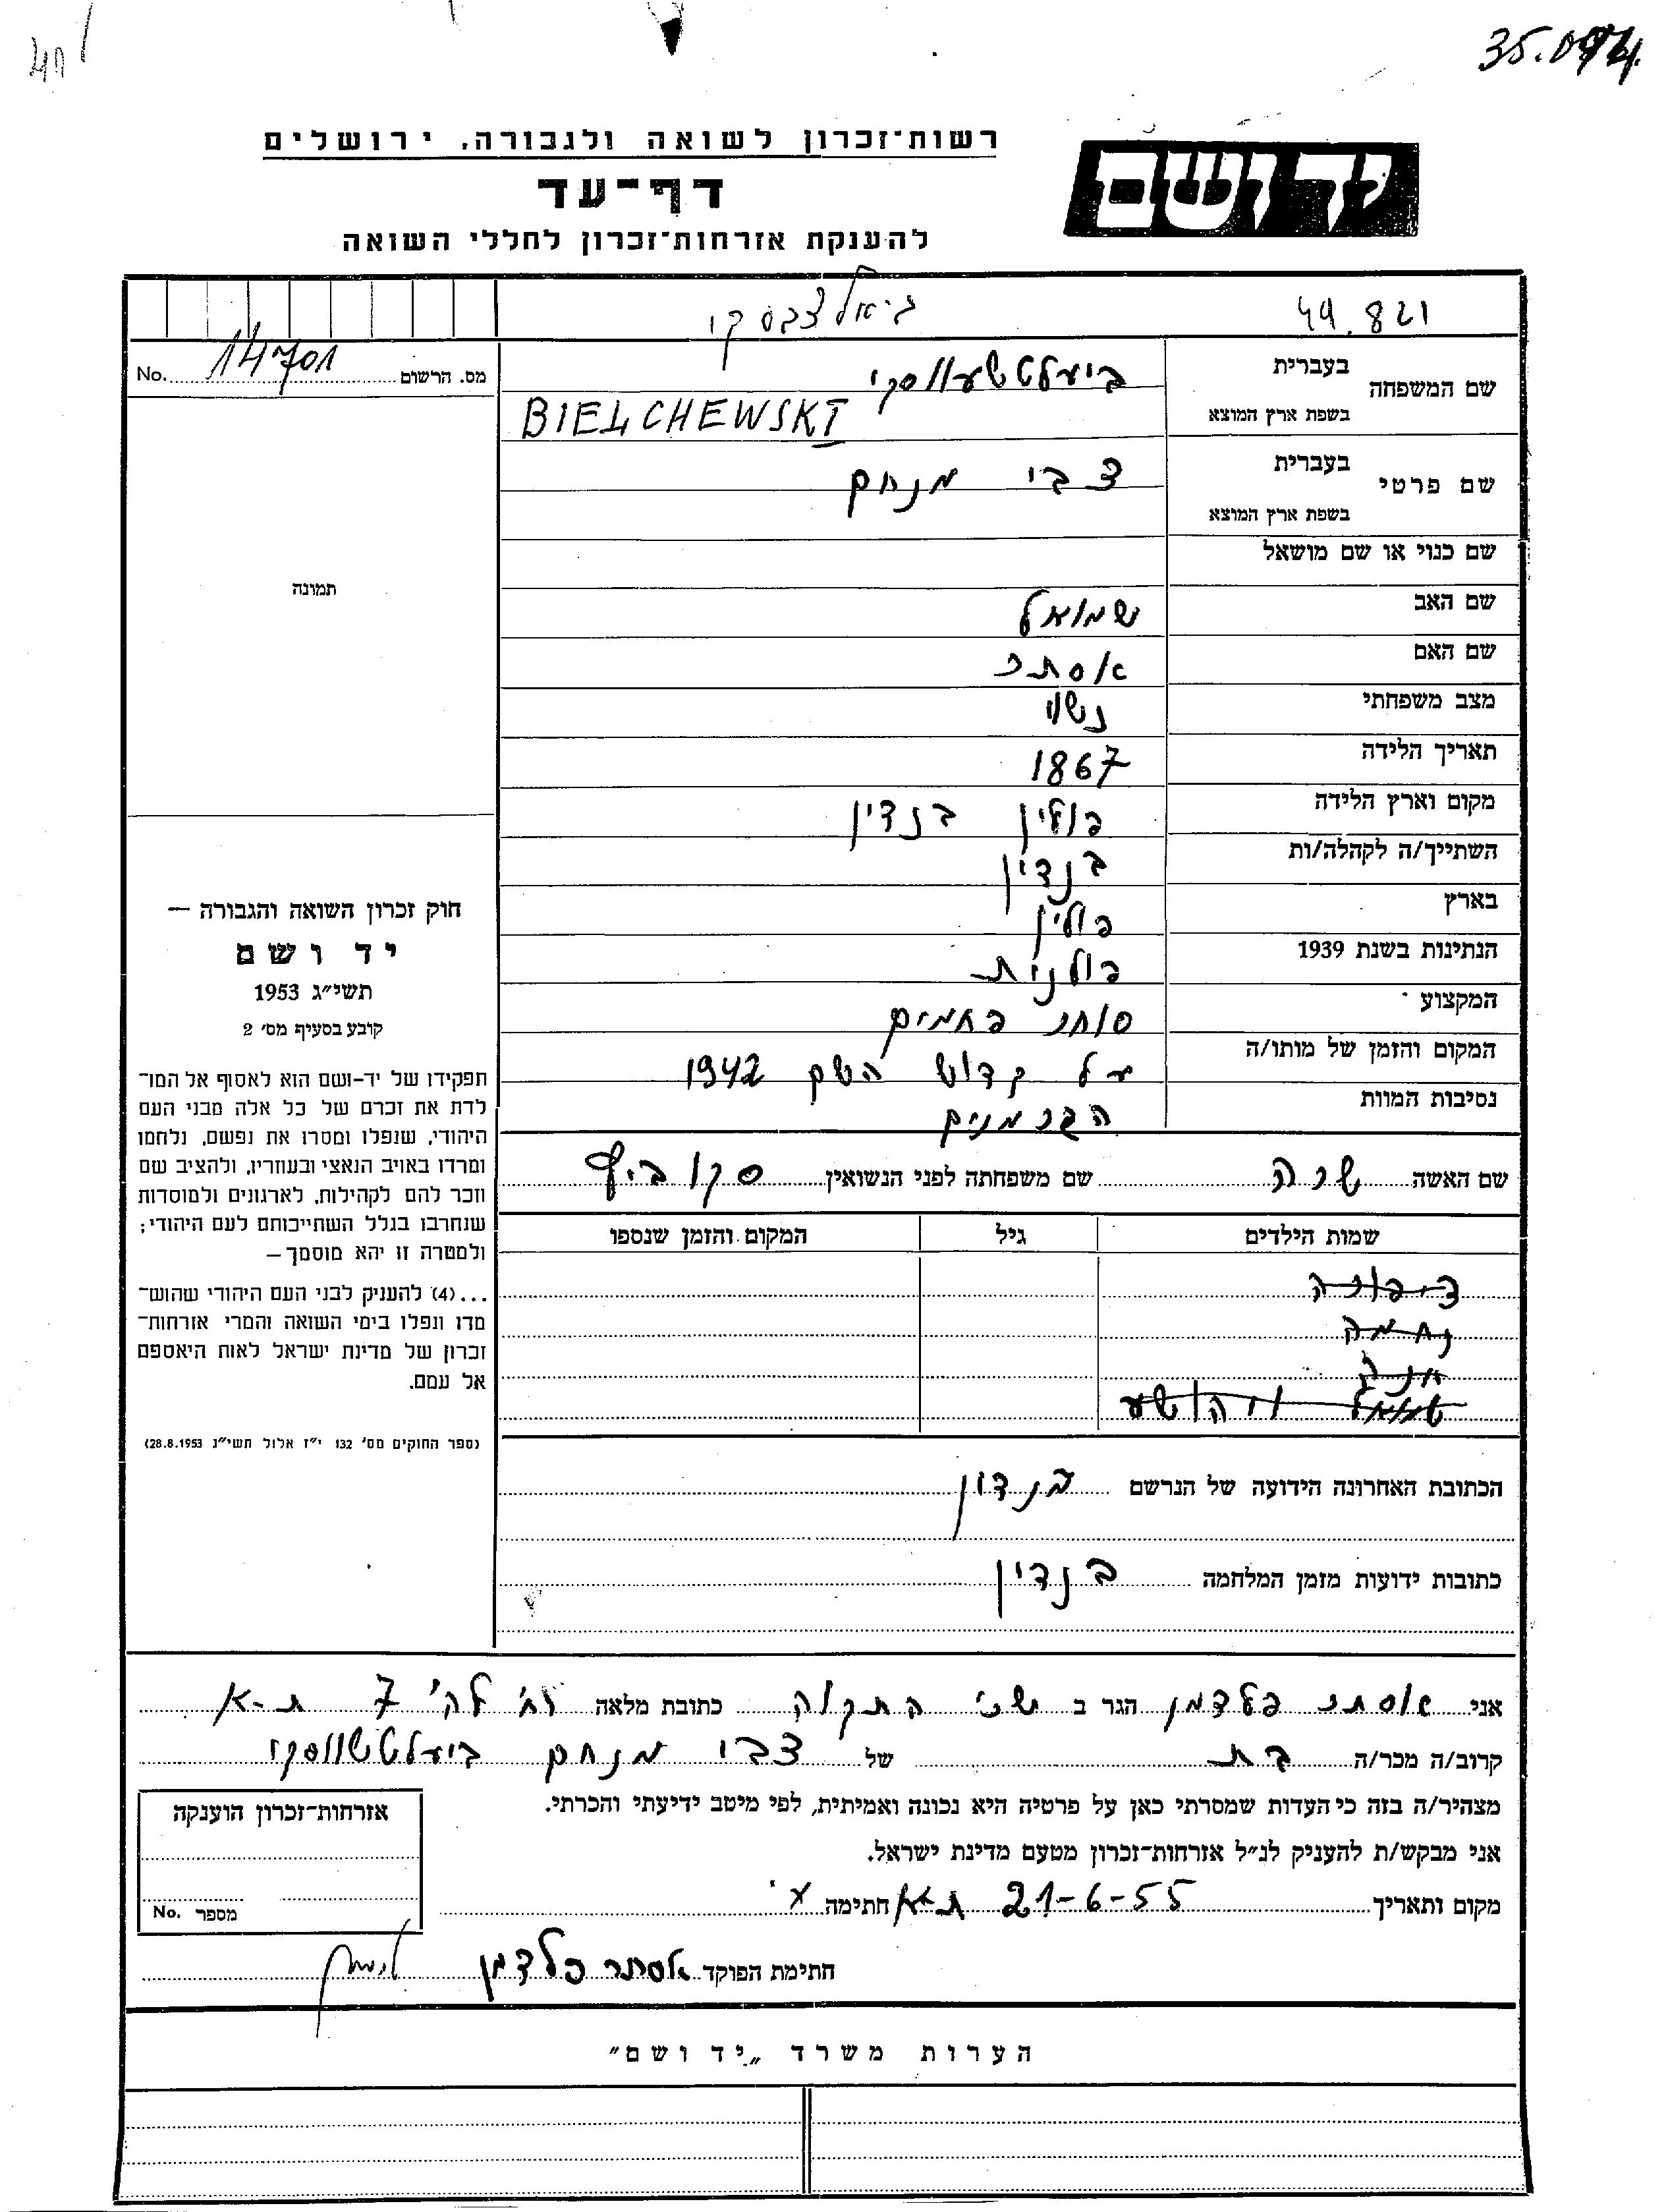 35.094
רשות־זכרון לשואה ולגבורה, ירושלים
יד ושם
דף־עד
להענקת אזרחות־זכרון לחללי השואה
49.821
ביאלצבסקי
No. 14701 מס. הרשום
תמונה
שם המשפחה
בעברית ביעלטשעווסקי
בשפת ארץ המוצא BIELCHEWSKI
שם פרטי
בעברית צבי מנחם
בשפת ארץ המוצא
שם כנוי או שם מושאל
שם האב שמואל
שם האם אסתר
מצב משפחתי נשוי
תאריך הלידה 1867
מקום וארץ הלידה פולין בנדין
השתייך/ה לקהלה/ות בנדין
בארץ פולין
הנתינות בשנת 1939 פולנית
המקצוע סוחר פחמים
המקום והזמן של מותו/ה על קדוש השם 1942
נסיבות המוות הגרמנים
שם האשה שרה שם משפחתה לפני הנשואין
שמות הילדים גיל המקום והזמן שנספו
ציפורה
נחמה
חנה
שמואל ויהושע
הכתובת האחרונה הידועה של הנרשם בנדין
כתובות ידועות מזמן המלחמה בנדין
חוק זכרון השואה והגבורה —
יד ושם
תשי״ג 1953
קובע בסעיף מס׳ 2
תפקידו של יד-ושם הוא לאסוף אל המו־
לדת את זכרם של כל אלה מבני העם
היהודי, שנפלו ומסרו את נפשם, נלחמו
ומרדו באויב הנאצי ובעוזריו, ולהציב שם
וזכר להם לקהילות, לארגונים ולמוסדות
שנחרבו בגלל השתייכותם לעם היהודי;
ולמטרה זו יהא מוסמך —
...(4) להעניק לבני העם היהודי שהוש־
מדו ונפלו בימי השואה והמרי אזרחות־
זכרון של מדינת ישראל לאות היאספם
אל עמם.
(ספר החוקים מס׳ 132 י״ז אלול תשי״ג 28.8.1953)
אני אסתר פלדמן הגר ב שכ׳ התקוה כתובת מלאה רח׳ לה׳ 7 ת-א
קרוב/ה מכר/ה בת של צבי מנחם ביעלטשווסקי
מצהיר/ה בזה כי העדות שמסרתי כאן על פרטיה היא נכונה ואמיתית, לפי מיטב ידיעתי והכרתי.
אני מבקש/ת להעניק לנ״ל אזרחות־זכרון מטעם מדינת ישראל.
מקום ותאריך 21-6-55 ת״א חתימה x
חתימת הפוקד אסתר פלדמן
אזרחות־זכרון הוענקה
No. מספר
הערות משרד „יד ושם״